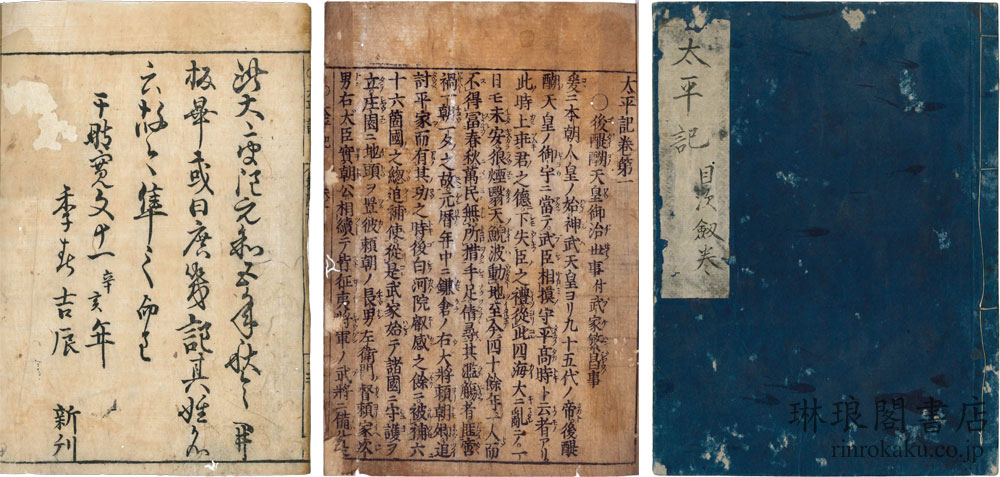 板畢或曰庶幾記其姓名
于時寛文十一辛亥年
季春吉辰
新刊
太平記卷第一
○後醍醐天皇御治世事付武家繁昌事
爰ニ本朝人皇ノ始神武天皇ヨリ九十五代ノ帝後醍
醐天皇ノ御宇ニ當テ武臣相摸守平高時ト云者アリ
此時上乖君之德下失臣之禮從此四海大ニ亂テ一
日モ未安狼煙翳天鯢波動地至今四十餘年一人而
不得冨春秋萬民無所措手足倩尋其濫觴者匪啻
禍一朝一夕之故元暦年中ニ鎌倉ノ右大將頼朝卿追
討平家而有其功之時後白河院叡感之餘ニ被補六
十六箇國之總追補使從是武家始テ諸國ニ守護ヲ
立庄園ニ地頭ヲ置彼頼朝ノ長男左衛門督頼家次
男右大臣實朝公相續テ皆征夷將軍ノ武將ニ備ル
太平記 目次 劔卷
琳琅閣書店
rinrokaku.co.jp